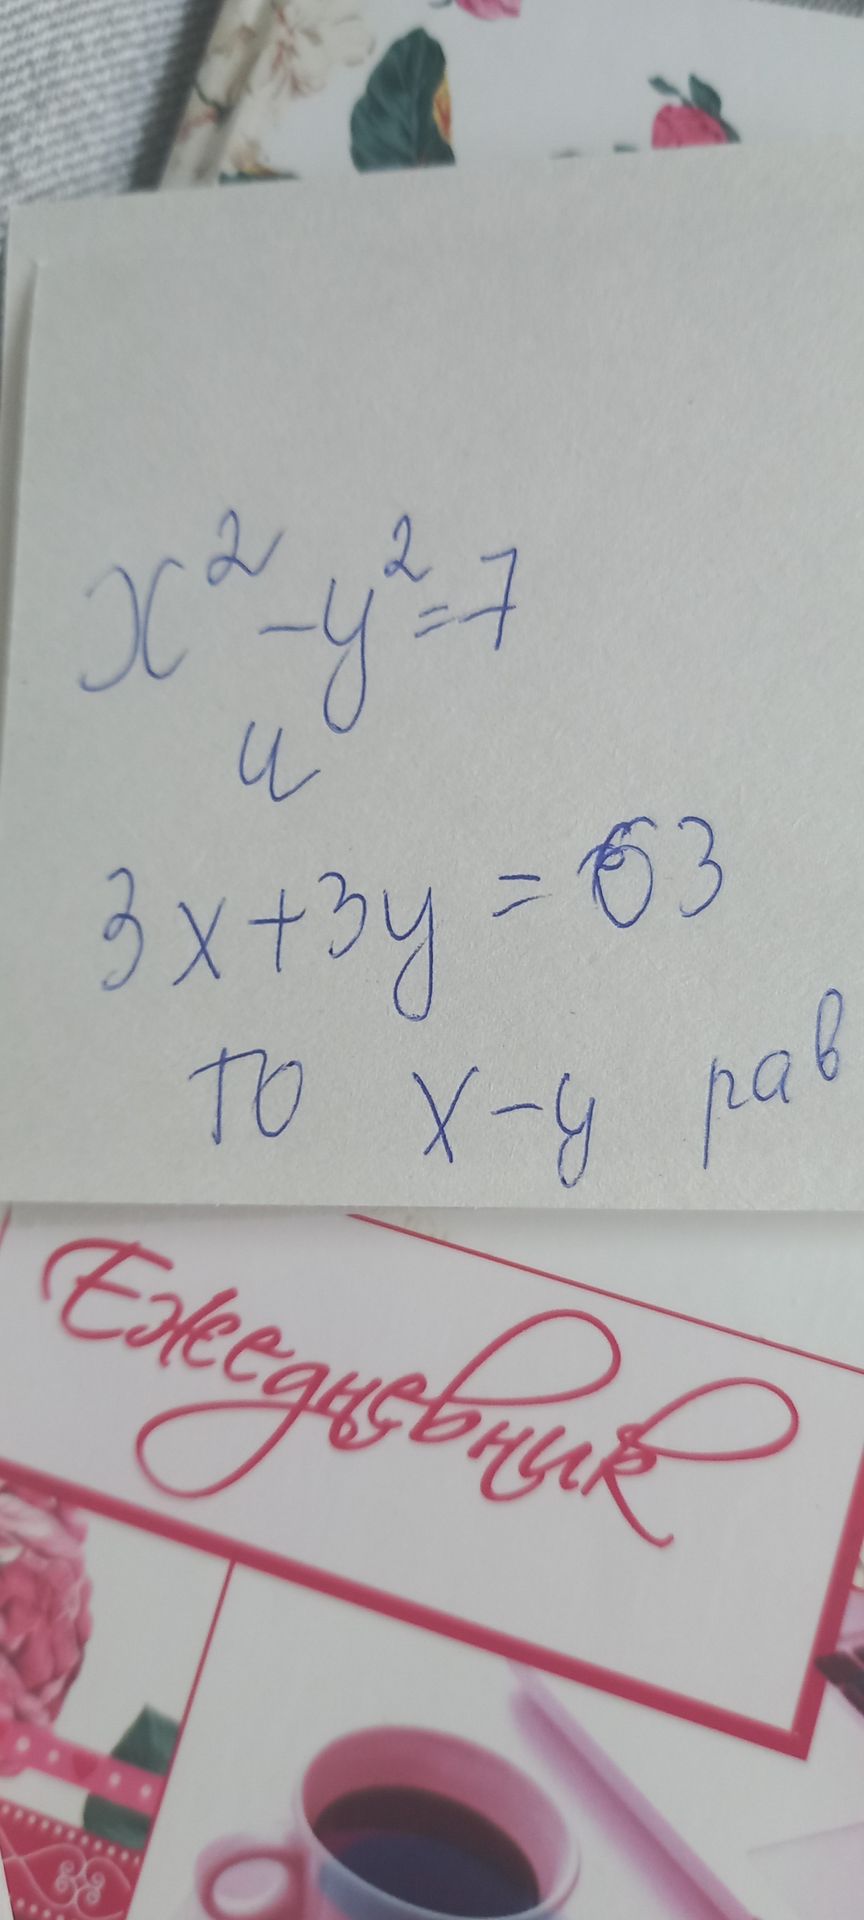 x² - y² = 7
и
3x + 3y = 63
то x - y рав
Ежедневник